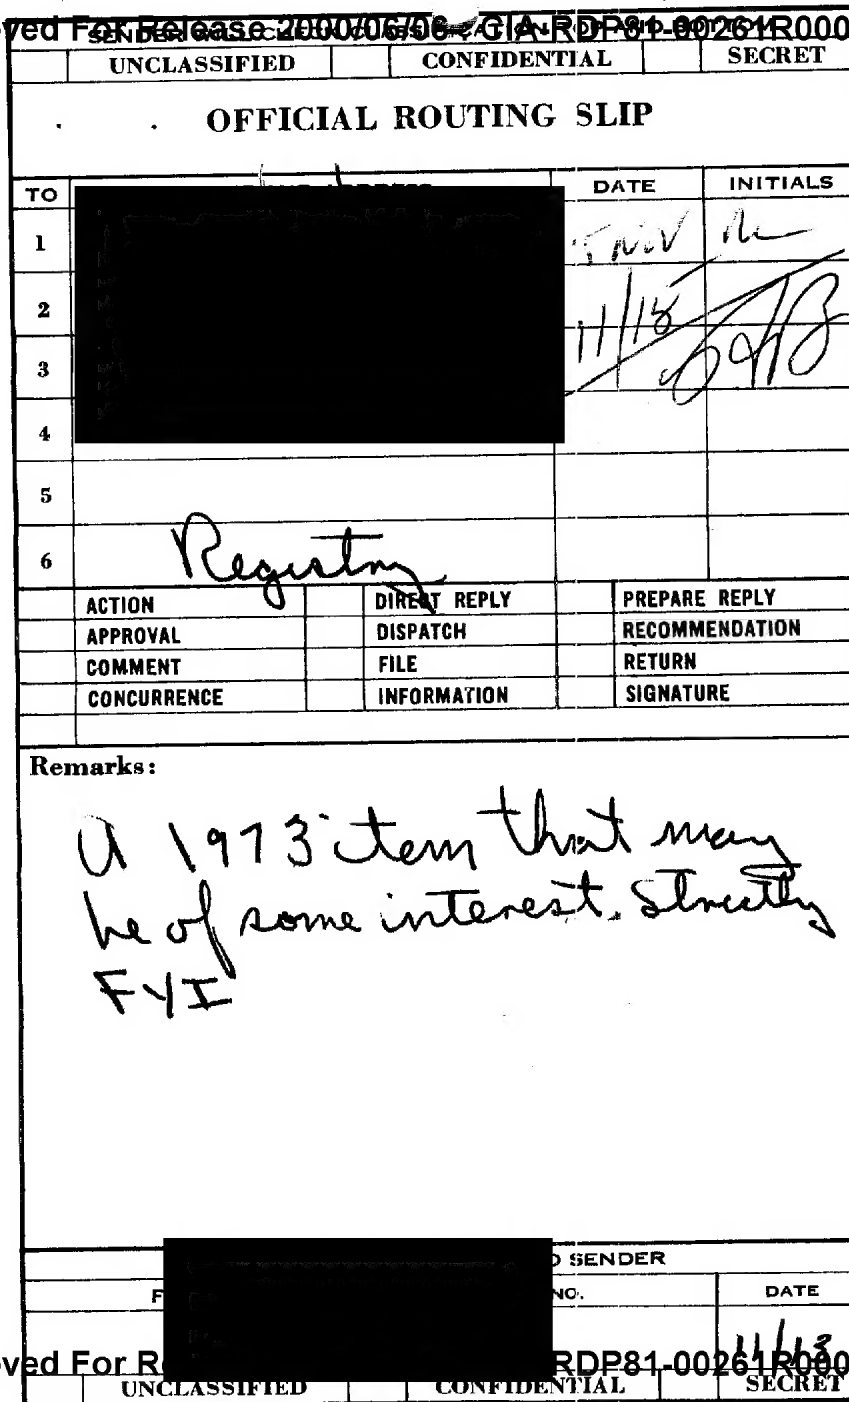 yed For Release 2000/06/06 : CIA-RDP81-00261R000
SENDER WILL CHECK CLASSIFICATION TOP AND BOTTOM
UNCLASSIFIED CONFIDENTIAL SECRET
OFFICIAL ROUTING SLIP
TO DATE INITIALS
1 NOV
2 11/18
3
4
5
6 Registry
ACTION DIRECT REPLY PREPARE REPLY
APPROVAL DISPATCH RECOMMENDATION
COMMENT FILE RETURN
CONCURRENCE INFORMATION SIGNATURE
Remarks:
A 1973 item that may
be of some interest. Strictly
FYI
SENDER
NO. DATE
11/13
ved For R RDP81-00261R000
UNCLASSIFIED CONFIDENTIAL SECRET